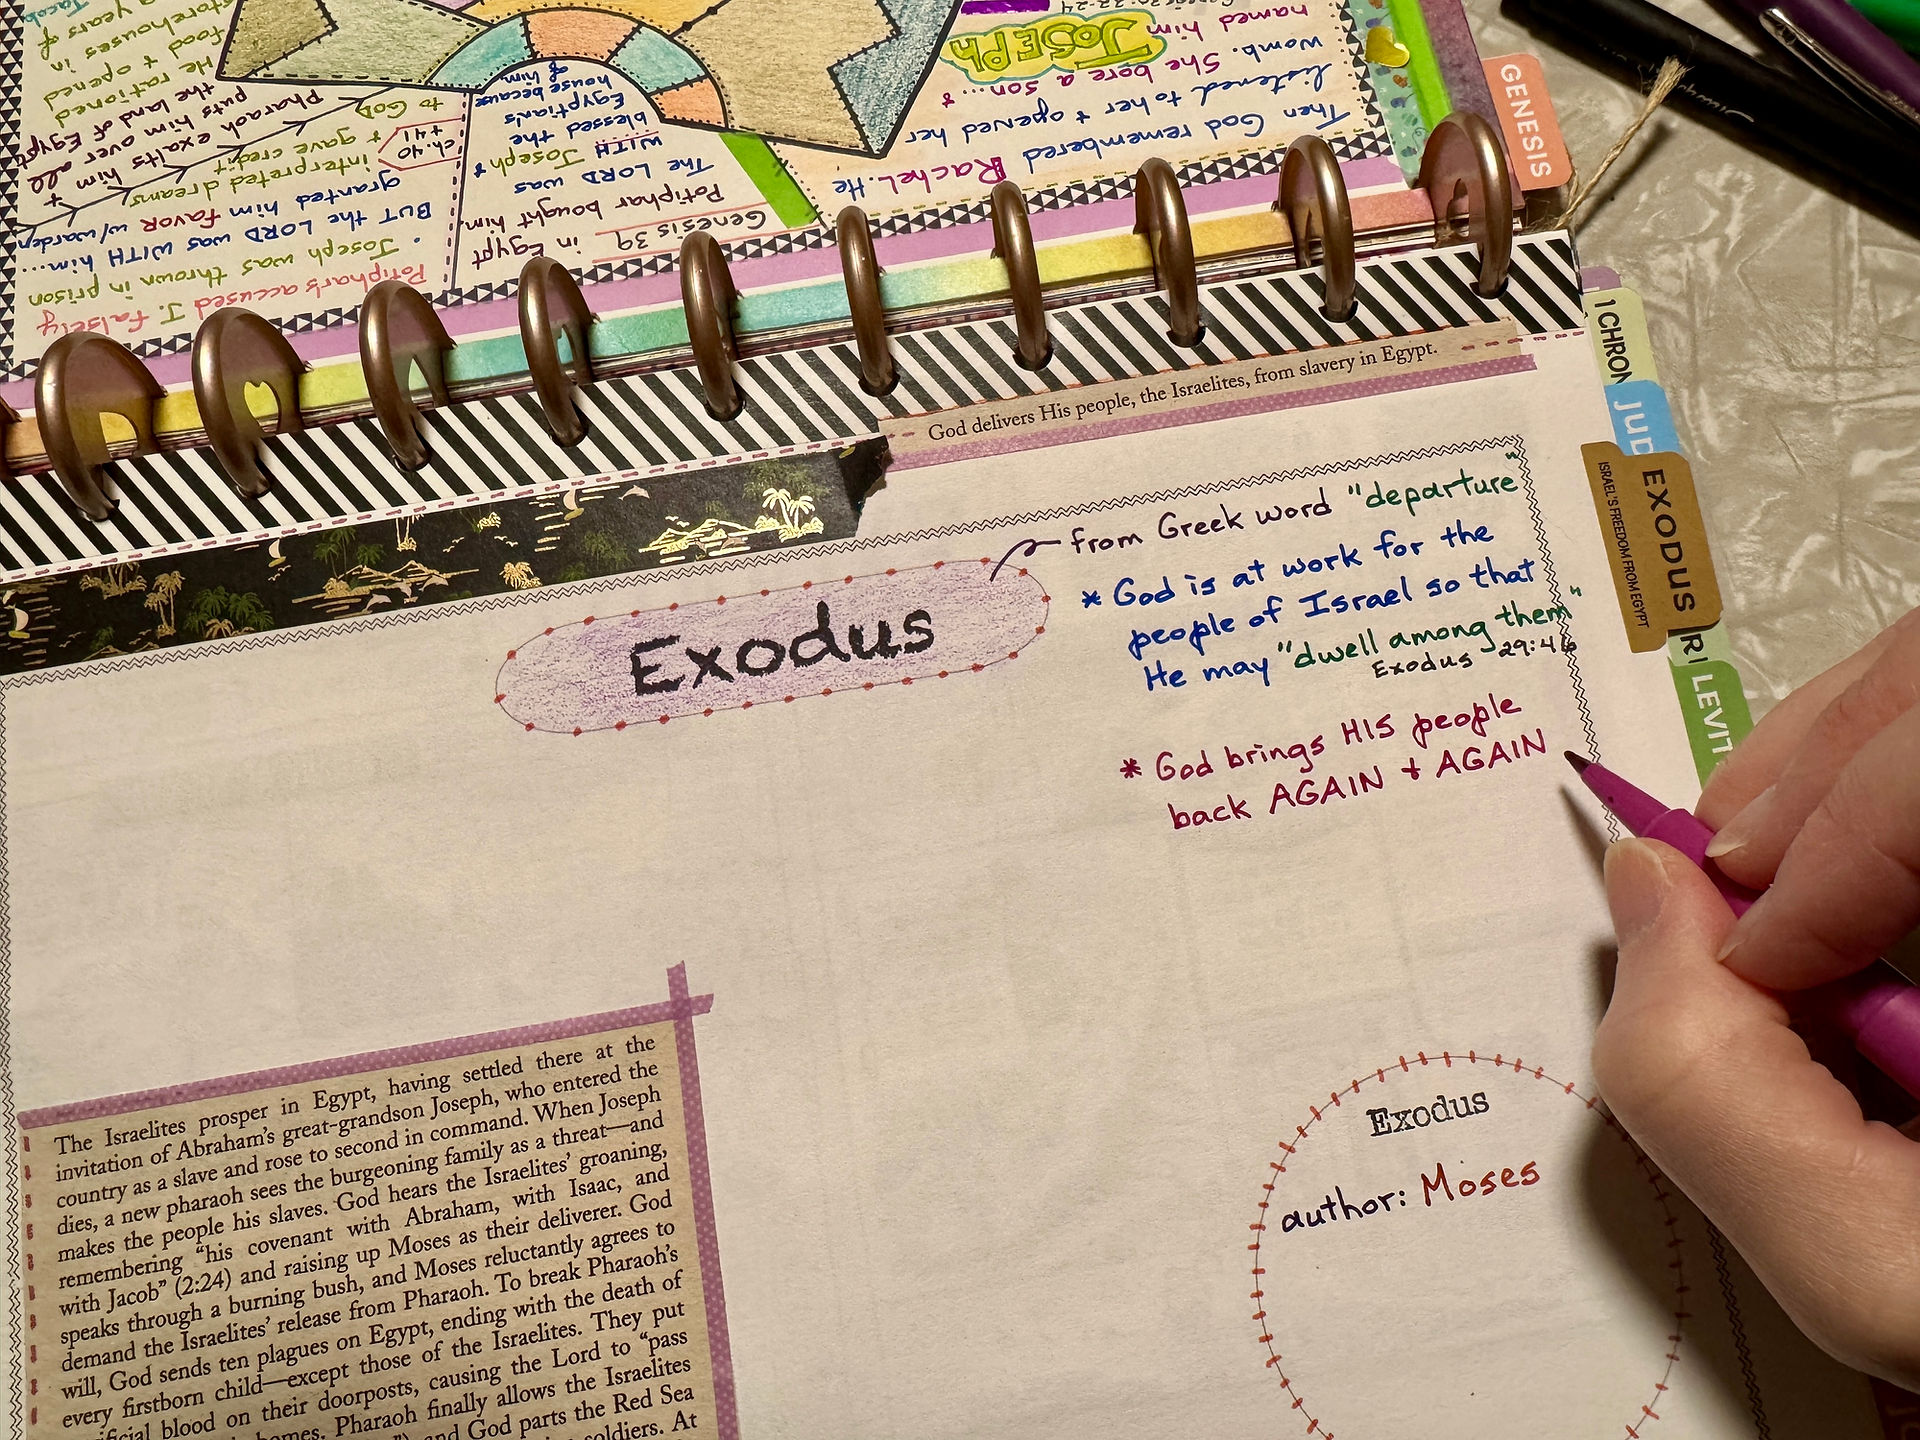 Genesis 30:22-24
Then God remembered Rachel. He
listened to her + opened her
womb. She bore a son...+
named him
JOSEPH
Genesis 39
Potiphar bought him
in Egypt
The LORD was
WITH Joseph +
blessed the
Egyptian's
house because
of him
Potiphar's accused J. falsely
• Joseph was thrown in prison
BUT the LORD was WITH him...
granted him favor w/warden
interpreted dreams
+ gave credit
to GOD
ch. 40
+ 41
Pharaoh exalts him +
puts him over all
the land of Egypt
He rationed
food + opened
storehouses in
years of
Jacob
GENESIS
1 CHRON
JUD
EXODUS
ISRAEL'S FREEDOM FROM EGYPT
LEVIT
God delivers His people, the Israelites, from slavery in Egypt.
Exodus
from Greek word "departure"
* God is at work for the
people of Israel so that
He may "dwell among them"
Exodus 29:46
* God brings HIS people
back AGAIN + AGAIN
The Israelites prosper in Egypt, having settled there at the
invitation of Abraham's great-grandson Joseph, who entered the
country as a slave and rose to second in command. When Joseph
dies, a new pharaoh sees the burgeoning family as a threat—and
makes the people his slaves. God hears the Israelites' groaning,
remembering "his covenant with Abraham, with Isaac, and
with Jacob" (2:24) and raising up Moses as their deliverer. God
speaks through a burning bush, and Moses reluctantly agrees to
demand the Israelites' release from Pharaoh. To break Pharaoh's
will, God sends ten plagues on Egypt, ending with the death of
every firstborn child—except those of the Israelites. They put
blood on their doorposts, causing the Lord to "pass
homes. Pharaoh finally allows the Israelites
and God parts the Red Sea
soldiers. At
Exodus
author: Moses